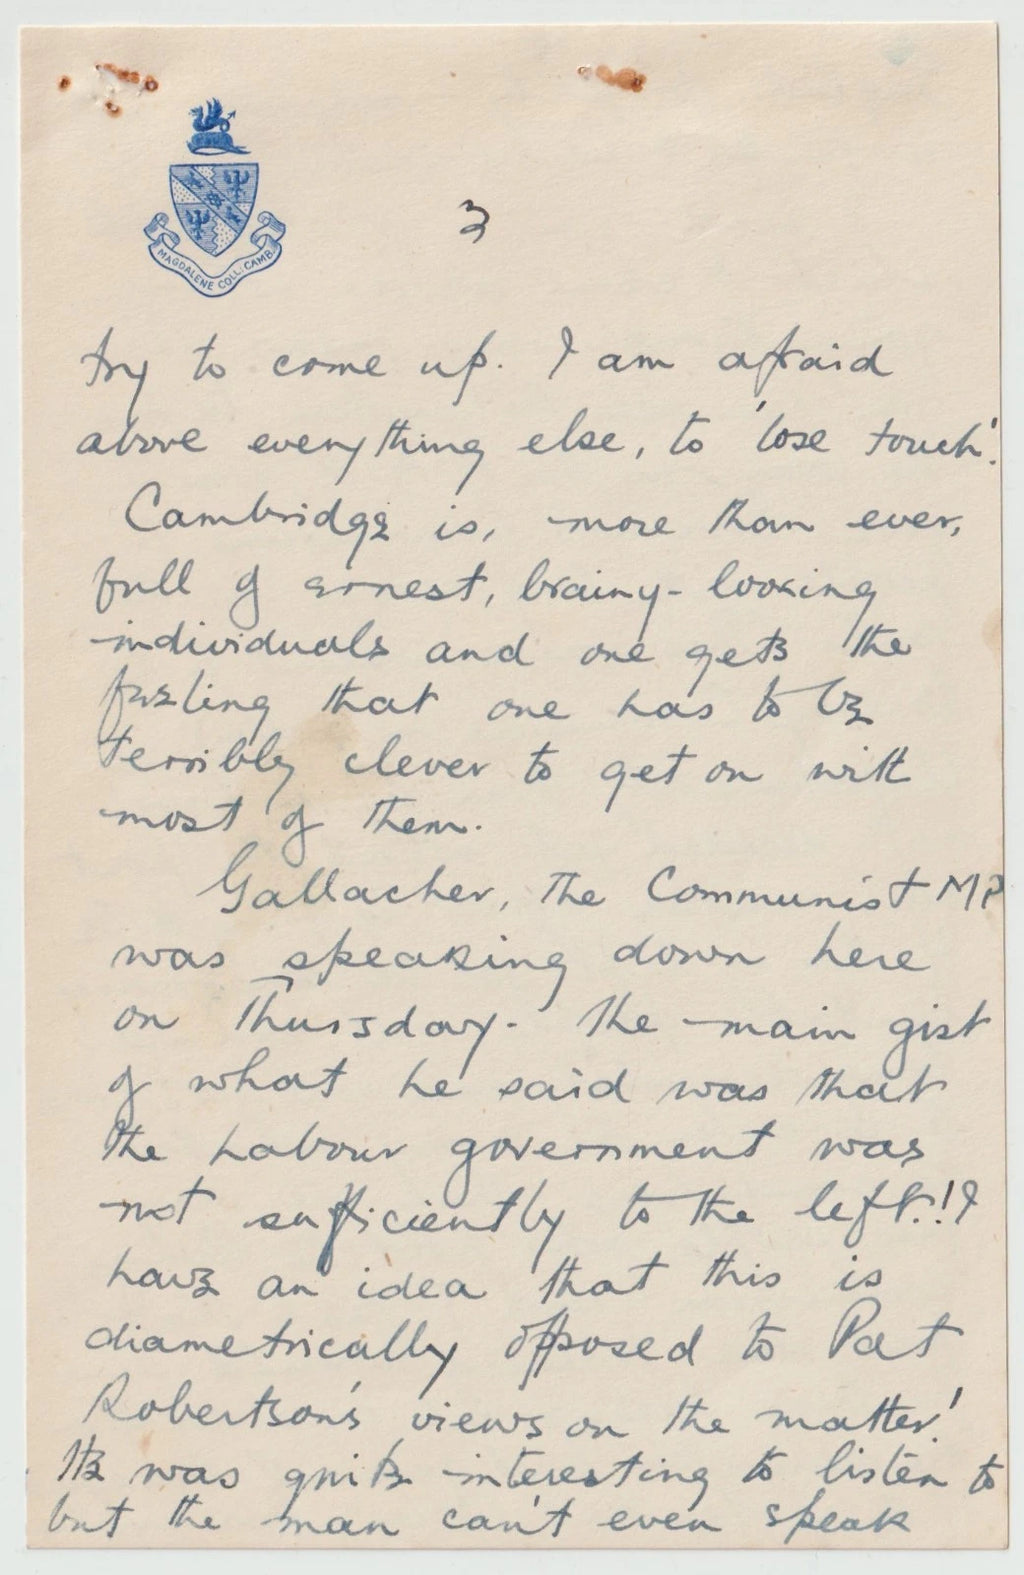 MAGDALENE COLL: CAMB.
3
try to come up. I am afraid
above everything else, to 'lose touch'.
Cambridge is, more than ever,
full of ernest, brainy-looking
individuals and one gets the
feeling that one has to be
terribly clever to get on with
most of them.
Gallacher, the Communist MP
was speaking down here
on Thursday. The main gist
of what he said was that
the Labour government was
not sufficiently to the left!! I
have an idea that this is
diametrically opposed to Pat
Robertson's views on the matter!
He was quite interesting to listen to
but the man can't even speak